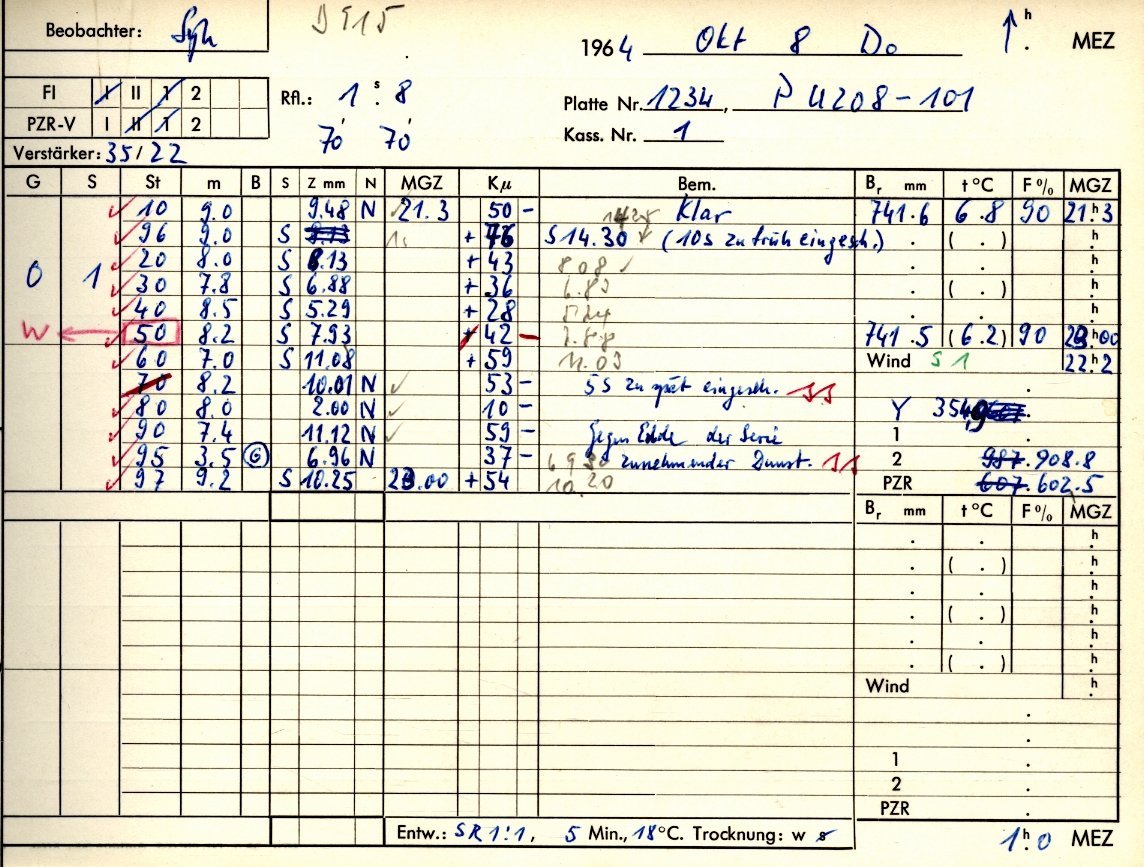 Beobachter: Sgh D 915
1964 Okt 8 Do h . MEZ
FI I II 1 2
PZR-V I II 1 2
Verstärker: 35/22
Rfl.: 1 s. 8
70' 70'
Platte Nr. 1234, P U208-101
Kass. Nr. 1
G S St m B S Z mm N MGZ Kμ Bem. Br mm t °C F% MGZ
10 9.0 9.48 N 21.3 50 - Klar 741.6 6.8 90 21h3
96 9.0 S + 76 S 14.30 (10s zu früh eingesch.) . ( . ) h
0 1 20 8.0 S 8.13 + 43 8.08 . . h
30 7.8 S 6.88 + 36 6.83 . ( . ) h
40 8.5 S 5.29 + 28 . . h
W 50 8.2 S 7.93 + 42 - 7.88 741.5 (6.2) 90 23h00
60 7.0 S 11.08 + 59 11.03 Wind S 1 22h2
70 8.2 10.01 N 53 - 5s zu spät eingesch. .
80 8.0 2.00 N 10 - Y 354,9
90 7.4 11.12 N 59 - Gegen Ende der Serie 1 .
95 3.5 G 6.96 N 37 - zunehmender Dunst. 2 987.908.8
97 9.2 S 10.25 23.00 + 54 10.20 PZR 607.602.5
Br mm t °C F% MGZ
. . h
. ( . ) h
. . h
. ( . ) h
. . h
. ( . ) h
Wind h
.
.
1 .
2 .
PZR .
Entw.: SR 1:1, 5 Min., 18°C. Trocknung: w s 1h.0 MEZ